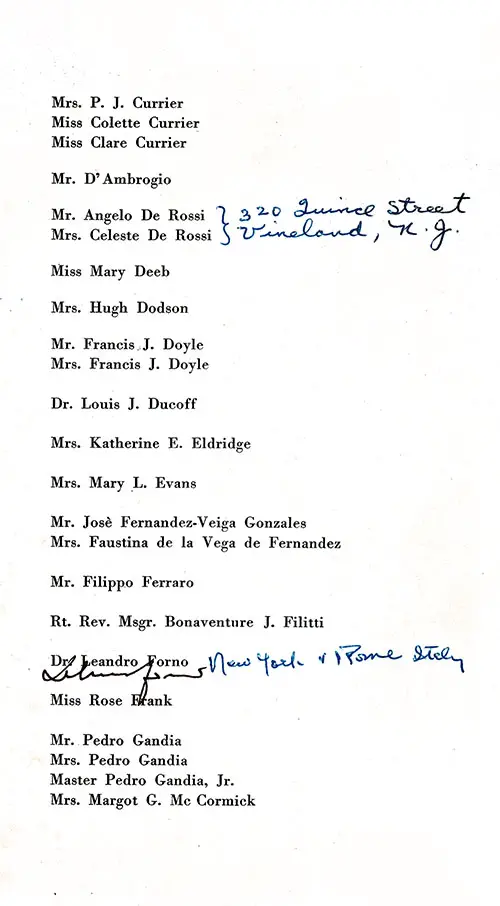 Mrs. P. J. Currier
Miss Colette Currier
Miss Clare Currier
Mr. D'Ambrogio
Mr. Angelo De Rossi } 320 Quince Street
Mrs. Celeste De Rossi } Vineland, N.J.
Miss Mary Deeb
Mrs. Hugh Dodson
Mr. Francis J. Doyle
Mrs. Francis J. Doyle
Dr. Louis J. Ducoff
Mrs. Katherine E. Eldridge
Mrs. Mary L. Evans
Mr. Josè Fernandez-Veiga Gonzales
Mrs. Faustina de la Vega de Fernandez
Mr. Filippo Ferraro
Rt. Rev. Msgr. Bonaventure J. Filitti
Dr. Leandro Forno New York & Rome Italy
Miss Rose Frank
Mr. Pedro Gandia
Mrs. Pedro Gandia
Master Pedro Gandia, Jr.
Mrs. Margot G. Mc Cormick